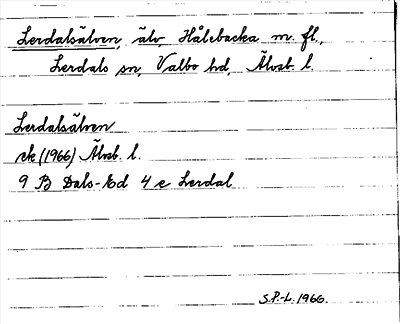 Lerdalsälven, älv, Hålebacka m. fl.,
Lerdals sn, Valbo hd, Älvsb. l.
Lerdalsälven
ek (1966) Älvsb. l.
9 B Dals-Ed 4 e Lerdal
S.P.-L. 1966.